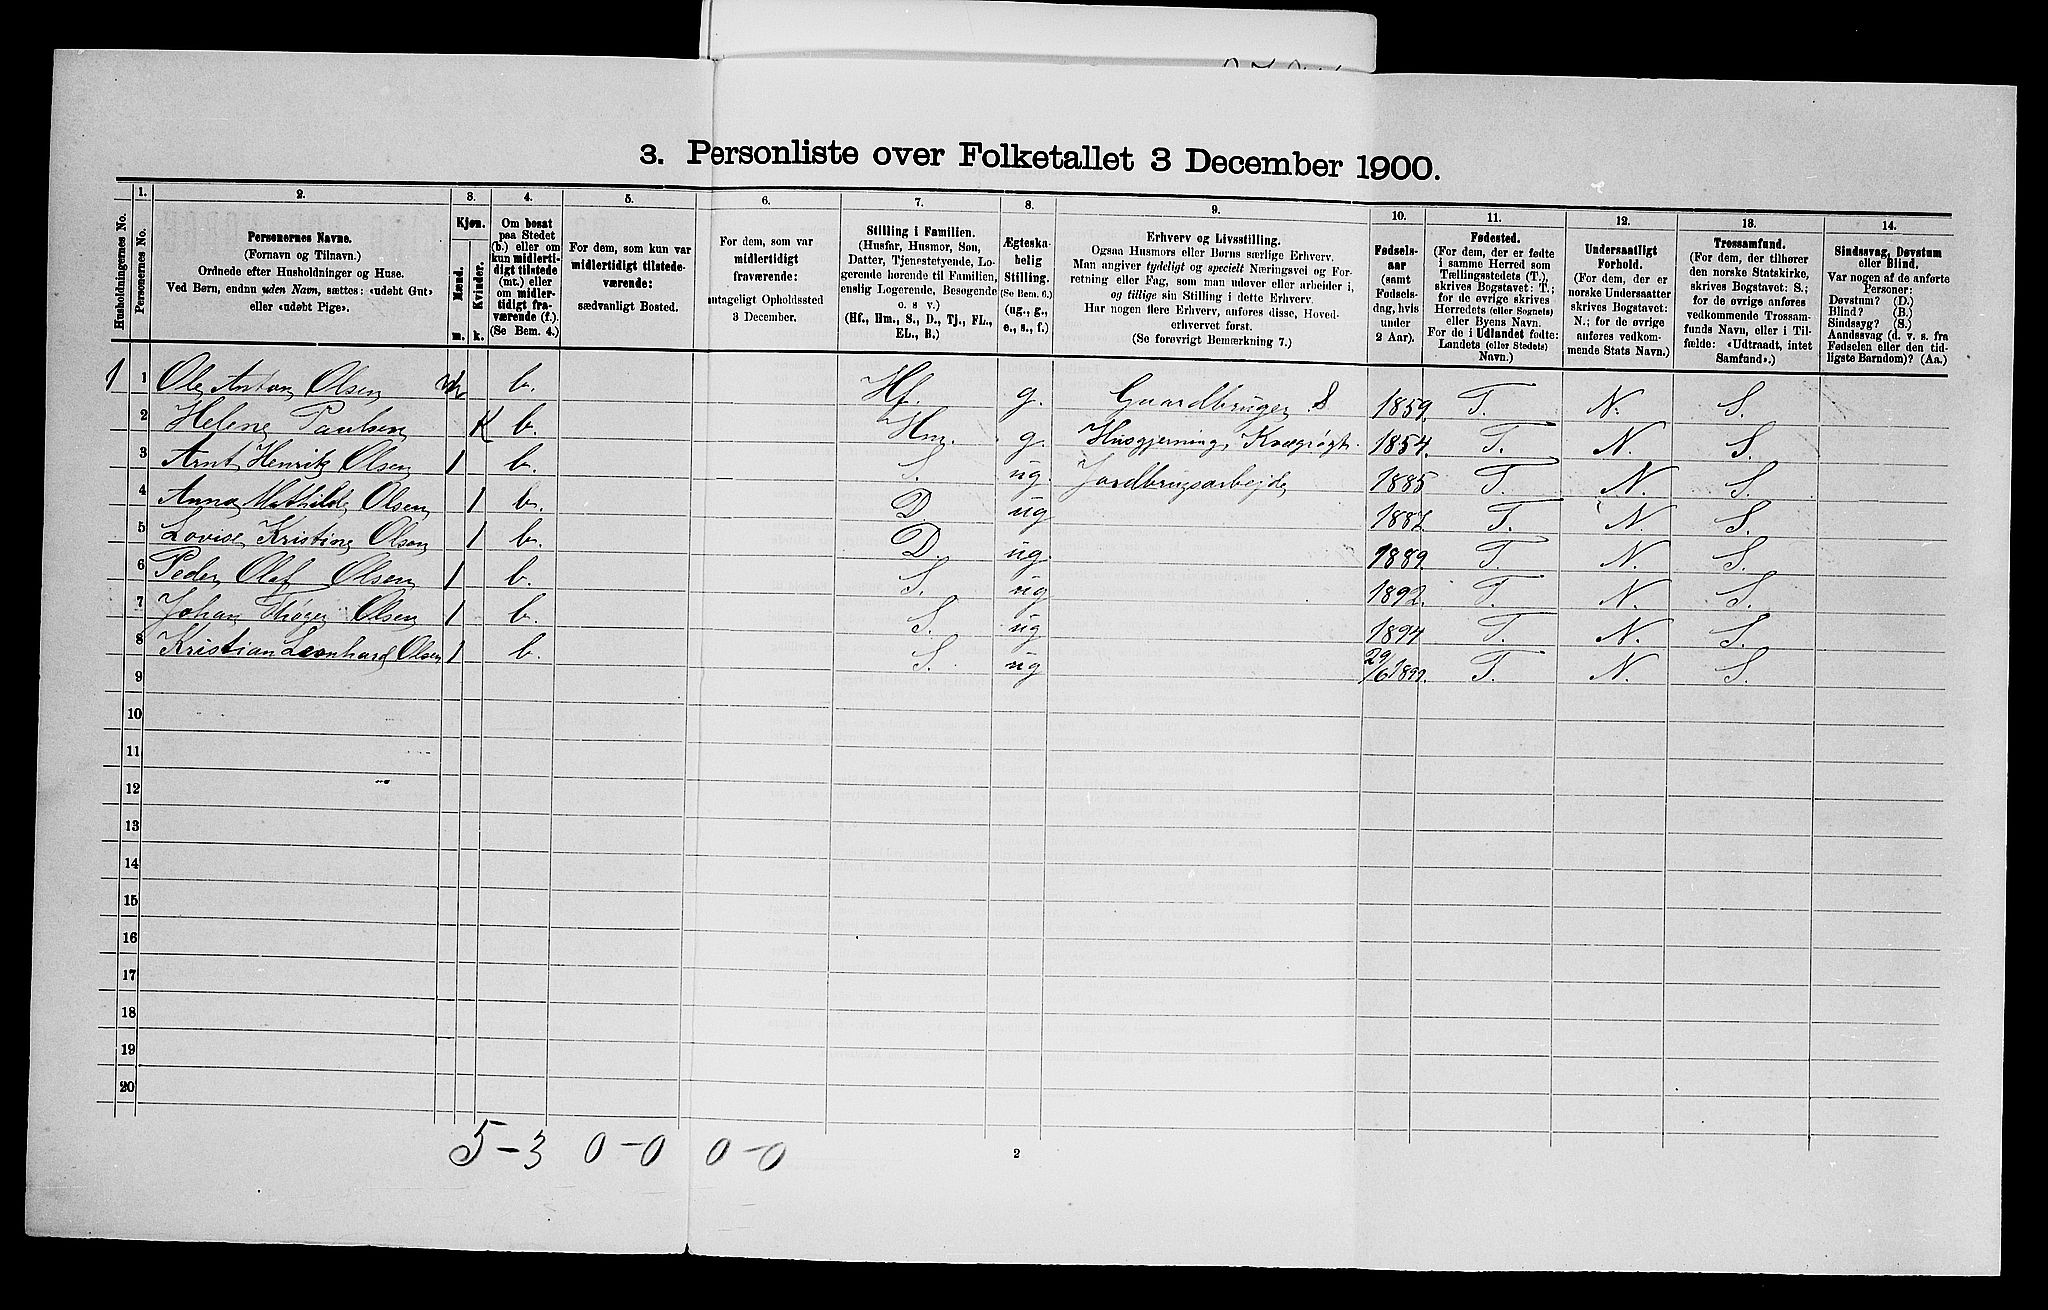 3. Personliste over Folketallet 3 December 1900.
1. 2. 3. 4. 5. 6. 7. 8. 9. 10. 11. 12. 13. 14.
Husholdningernes No.
Personernes No.
Personernes Navne.
(Fornavn og Tilnavn.)
Ordnede efter Husholdninger og Huse.
Ved Børn, endnu uden Navn, sættes: «udøbt Gut»
eller «udøbt Pige».
Kjøn.
Mænd.
Kvinder.
m. k.
Om bosat
paa Stedet
(b.) eller om
kun midlerti-
digt tilstede
(mt.) eller
om midler-
tidigt fra-
værende (f.).
(Se Bem. 4.)
For dem, som kun var
midlertidigt tilstede-
værende:
sædvanligt Bosted.
For dem, som var
midlertidigt
fraværende:
antageligt Opholdssted
3 December.
Stilling i Familien.
(Husfar, Husmor, Søn,
Datter, Tjenestetyende, Lo-
gerende hørende til Familien,
enslig Logerende, Besøgende
o. s v.)
(Hf., Hm., S., D., Tj., FL.,
EL., B.)
Ægteska-
belig
Stilling.
(Se Bem. 6.)
(ug., g.,
e., s., f.)
Erhverv og Livsstilling.
Ogsaa Husmors eller Børns særlige Erhverv.
Man angiver tydeligt og specielt Næringsvei og For-
retning eller Fag, som man udøver eller arbeider i,
og tillige sin Stilling i dette Erhverv.
Har nogen flere Erhverv, anføres disse, Hoved-
erhvervet først.
(Se forøvrigt Bemærkning 7.)
Fødsels-
aar
(samt
Fødsels-
dag, hvis
under
2 Aar).
Fødested.
(For dem, der er fødte
i samme Herred som
Tællingsstedets (T.),
skrives Bogstavet: T.;
for de øvrige skrives
Herredets (eller Sognets)
eller Byens Navn.
For de i Udlandet fødte:
Landets (eller Stedets)
Navn.)
Undersaatligt
Forhold.
(For dem, der er
norske Undersaatter
skrives Bogstavet:
N.; for de øvrige
anføres vedkom-
mende Stats Navn.)
Trossamfund.
(For dem, der tilhører
den norske Statskirke,
skrives Bogstavet: S.;
for de øvrige anføres
vedkommende Trossam-
funds Navn, eller i Til-
fælde: «Udtraadt, intet
Samfund».)
Sindssvag, Døvstum
eller Blind.
Var nogen af de anførte
Personer:
Døvstum? (D.)
Blind? (B.)
Sindssyg? (S.)
Aandssvag (d. v. s. fra
Fødselen eller den tid-
ligste Barndom)? (Aa.)
1 1 Ole Anton Olsen m b. Hf. g. Gaardbruger S 1859 T. N. S.
2 Helene Paulsen K b. Hm. g. Husgjerning, Kvægrøgt. 1854. T. N. S.
3 Arnt Henrik Olsen 1 b. S. ug. Jordbrugsarbejde 1885 T. N. S.
4 Anna Mathilde Olsen 1 b. D. ug 1887. T. N. S.
5 Lovise Kristine Olsen 1 b. D. ug. 1889. T. N. S.
6 Peder Olaf Olsen 1 b. S. ug 1892. T. N. S.
7 Johan Thøger Olsen 1 b. S. ug 1894 T. N. S.
8 Kristian Leonhard Olsen 1 b. S. ug 29/6 1899. T. N. S.
9
10
11
12
13
14
15
16
17
18
19
20
5-3 0-0 0-0
2